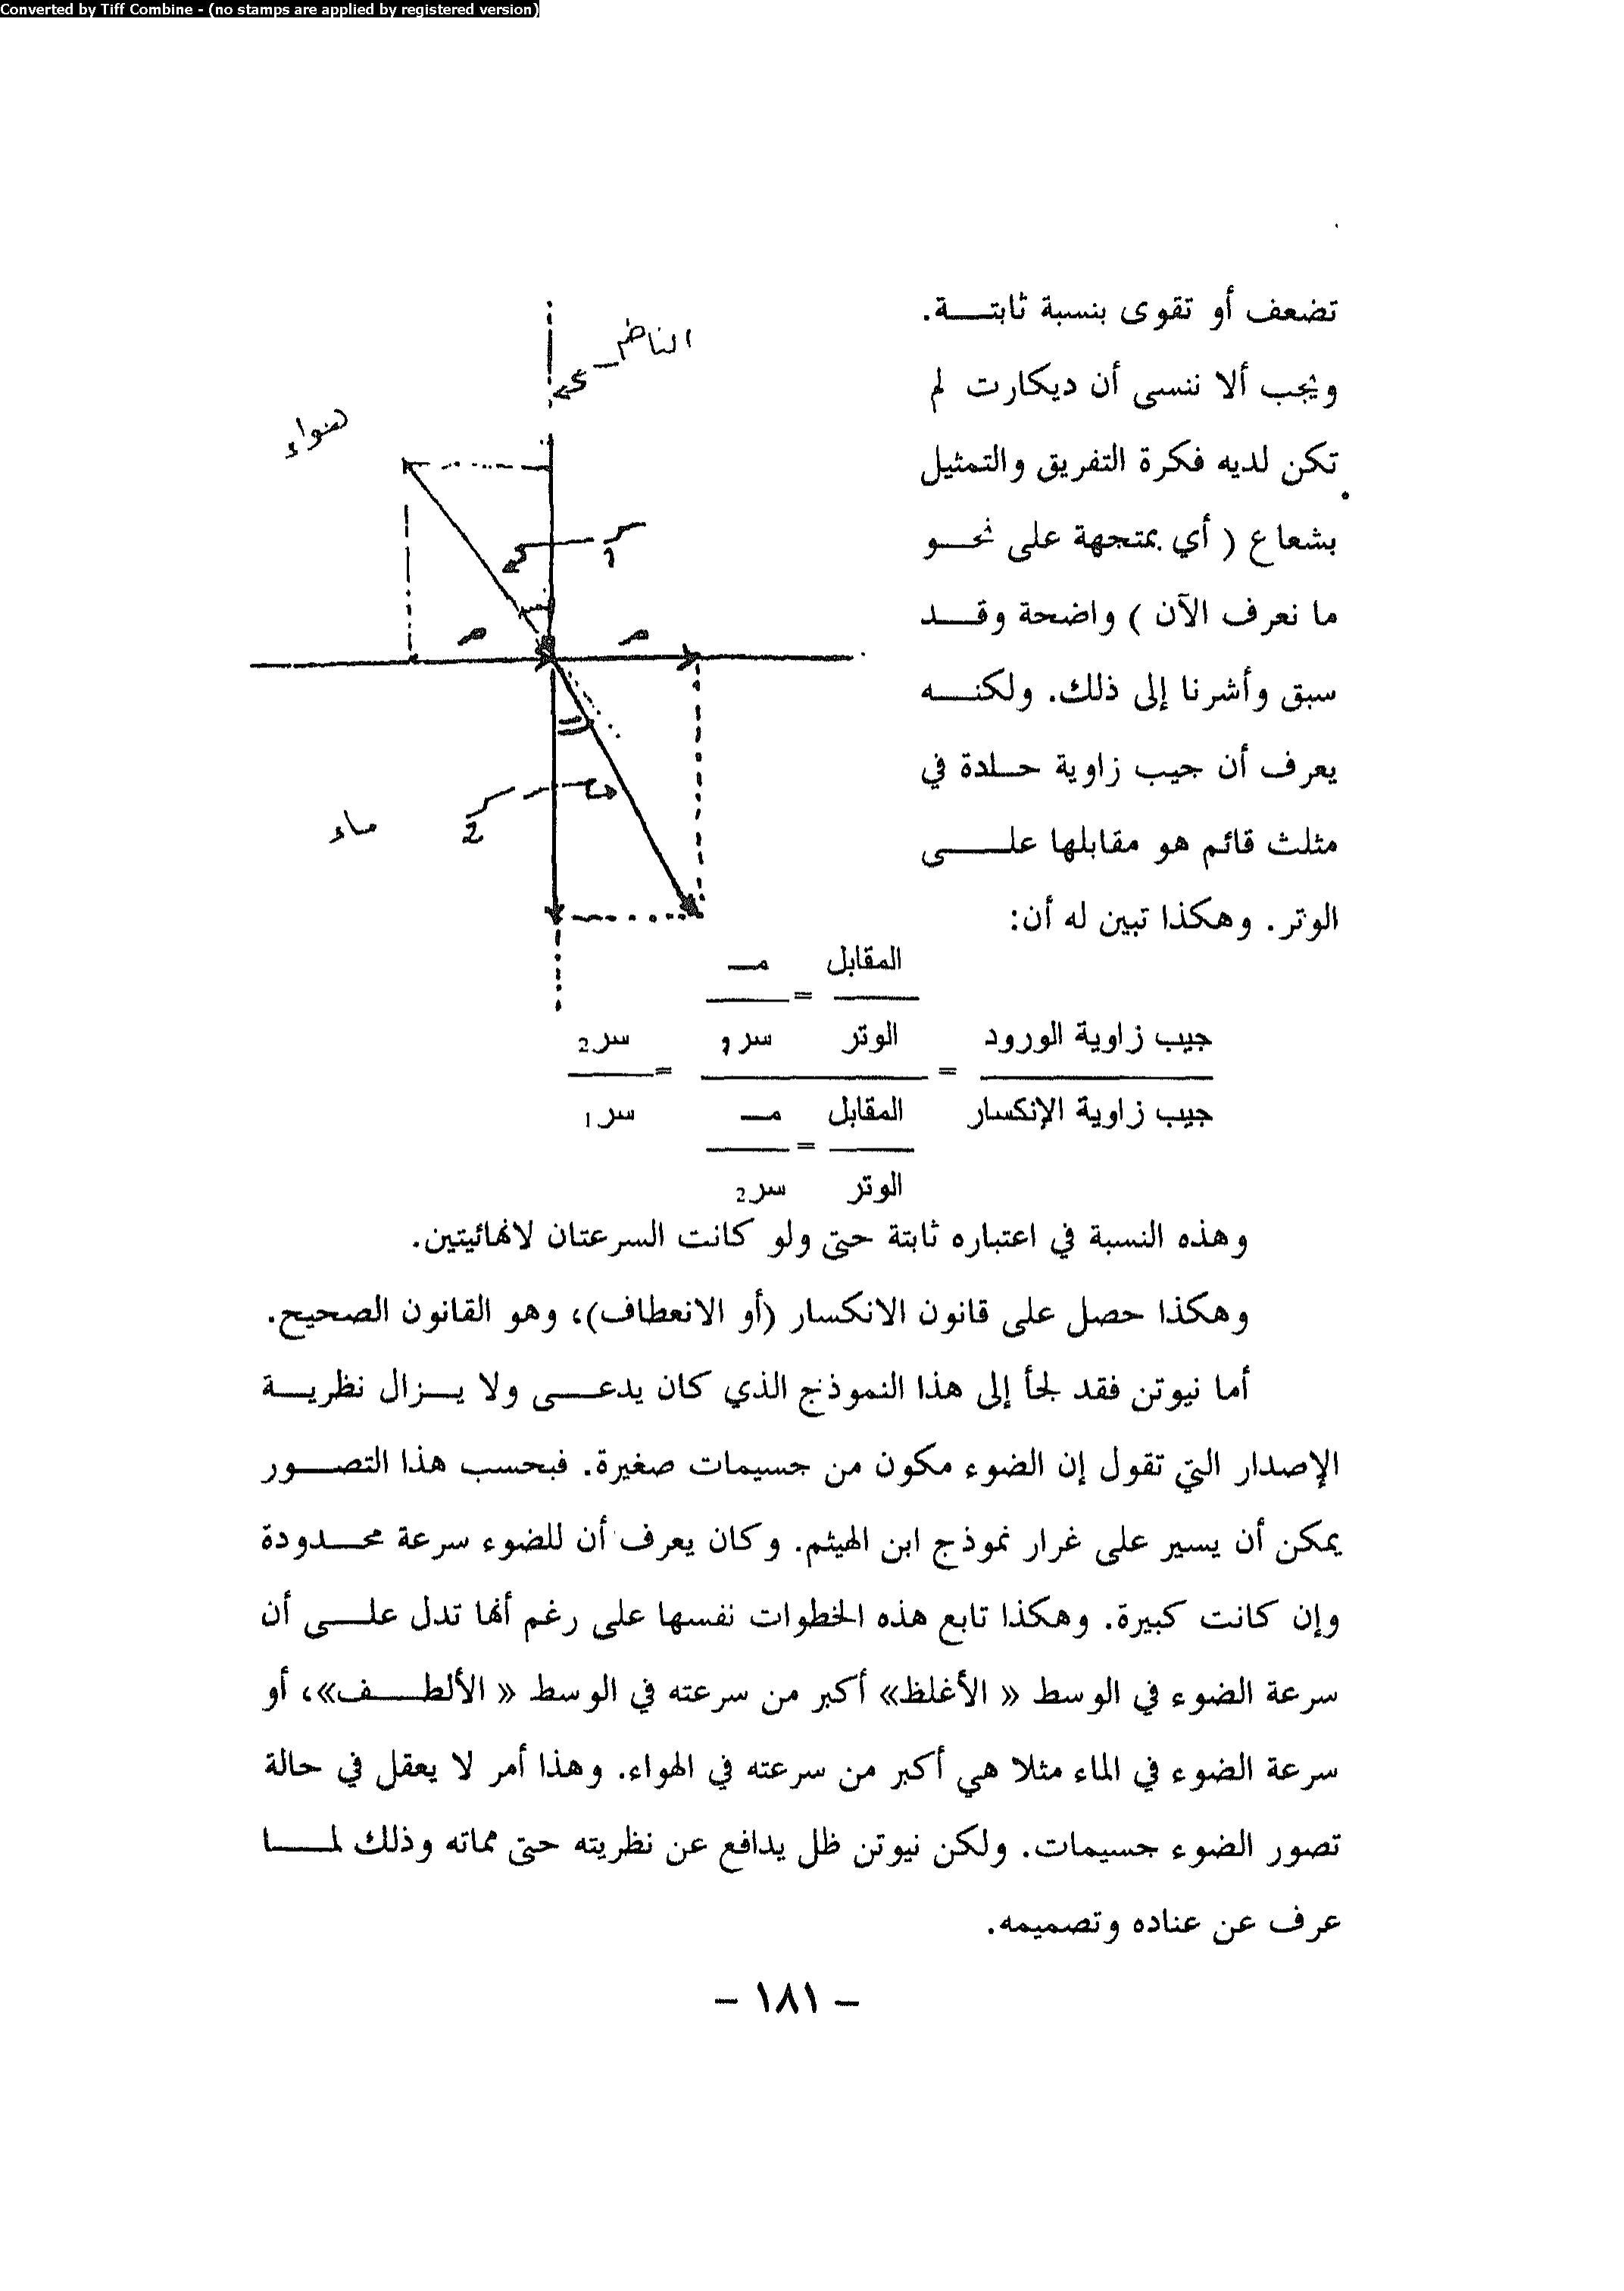 Converted by Tiff Combine - (no stamps are applied by registered version)
تضعف أو تقوى بنسبة ثابتـــة.
ويجب ألا ننسى أن ديكارت لم
تكن لديه فكرة التفريق والتمثيل
بشعاع ( أي بمتجهة على نحـــو
ما نعرف الآن ) واضحة وقـــد
سبق وأشرنا إلى ذلك. ولكنـــه
يعرف أن جيب زاوية حـلدة في
مثلث قائم هو مقابلها علـــــى
الوتر. وهكذا تبين له أن:
الناظم
هواء
سر 1
مـ مـ
سر 2
ماء
المقابل مــ
=
جيب زاوية الورود الوتر سر1 سر2
= =
جيب زاوية الإنكسار المقابل مــ سر1
=
الوتر سر2
وهذه النسبة في اعتباره ثابتة حتى ولو كانت السرعتان لانهائيتين.
وهكذا حصل على قانون الانكسار (أو الانعطاف)، وهو القانون الصحيح.
أما نيوتن فقد لجأ إلى هذا النموذج الذي كان يدعـــى ولا يـــزال نظريـــة
الإصدار التي تقول إن الضوء مكون من جسيمات صغيرة. فبحسب هذا التصـــور
يمكن أن يسير على غرار نموذج ابن الهيثم. وكان يعرف أن للضوء سرعة محـــدودة
وإن كانت كبيرة. وهكذا تابع هذه الخطوات نفسها على رغم أنها تدل علـــى أن
سرعة الضوء في الوسط « الأغلظ» أكبر من سرعته في الوسط « الألطـــف»، أو
سرعة الضوء في الماء مثلا هي أكبر من سرعته في الهواء. وهذا أمر لا يعقل في حالة
تصور الضوء جسيمات. ولكن نيوتن ظل يدافع عن نظريته حتى مماته وذلك لمـــا
عرف عن عناده وتصميمه.
– ١٨١ –